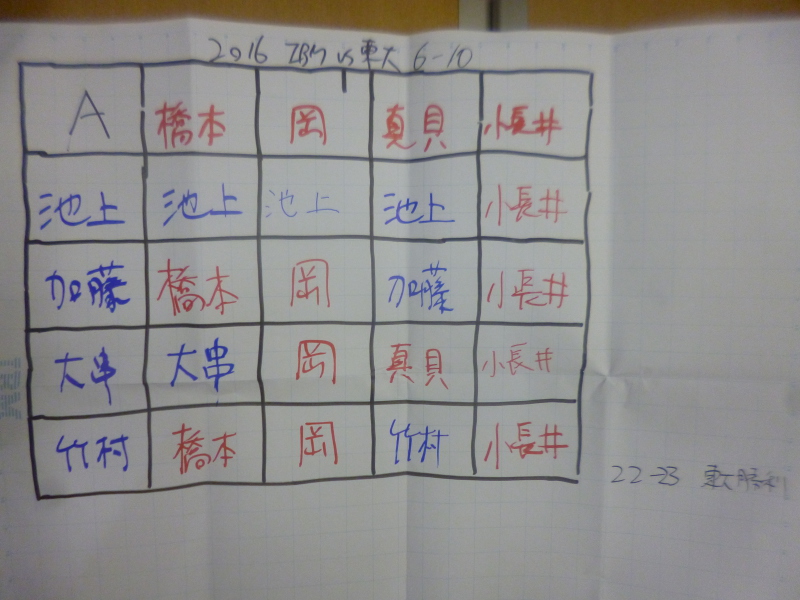 2016 IBM vs 東大 6-10
A 橋本 岡 真貝 小長井
池上 池上 池上 池上 小長井
加藤 橋本 岡 加藤 小長井
大串 大串 岡 真貝 小長井
竹村 橋本 岡 竹村 小長井
22-23 東大勝利
IBM